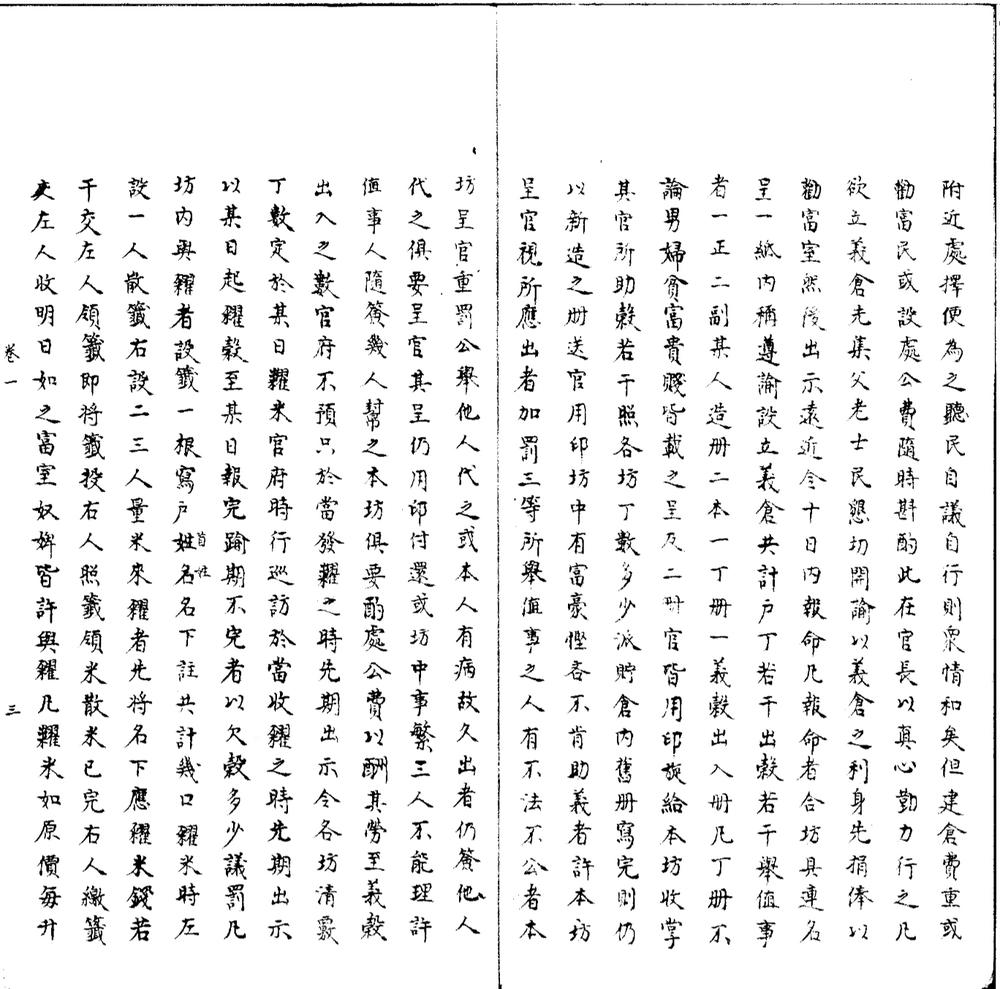 附近處擇便為之聽民自議自行則衆情和矣但建倉費重或
勸富民或設處公費隨時斟酌此在官長以真心勤力行之凡
欲立義倉先集父老士民懇切開諭以義倉之利身先捐俸以
勸富室然後出示遠近令十日內報命凡報命者合坊具連名
呈一紙內稱遵諭設立義倉共計戶丁若干出穀若干舉值事
者一正二副某人造册二本一丁册一義穀出入册凡丁册不
論男婦貧富貴賤皆載之呈及二册官皆用印旋給本坊收掌
其官所助穀若干照各坊丁數多少派貯倉內舊册寫完則仍
以新造之册送官用印坊中有富豪慳吝不肯助義者許本坊
呈官視所應出者加罰三等所舉值事之人有不法不公者本
坊呈官重罰公舉他人代之或本人有病故久出者仍簽他人
代之俱要呈官其呈仍用印付還或坊中事繁三人不能理許
值事人隨簽幾人幫之本坊俱要酌處公費以酬其勞至義穀
出入之數官府不預只於當發糶之時先期出示令各坊清覈
丁數定於某日糶米官府時行巡訪於當收糴之時先期出示
以某日起糴穀至某日報完踰期不完者以欠穀多少議罰凡
坊內與糴者設籤一根寫戶首姓姓名名下註共計幾口糴米時左
設一人散籤右設二三人量米來糴者先將名下應糴米錢若
干交左人領籤即將籤投右人照籤領米散米已完右人繳籤
交左人收明日如之富室奴婢皆許與糴凡糶米如原價每升
卷一
三